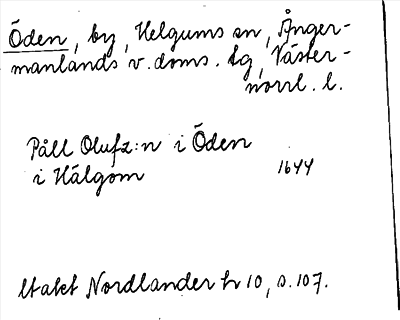 Öden, by, Helgums sn, Ånger-
manlands v. doms. tg, Väster-
norrl. l.
Påll Olufz:n i Öden
i Hälgom 1644
Utakt Nordlander h 10, s. 107.